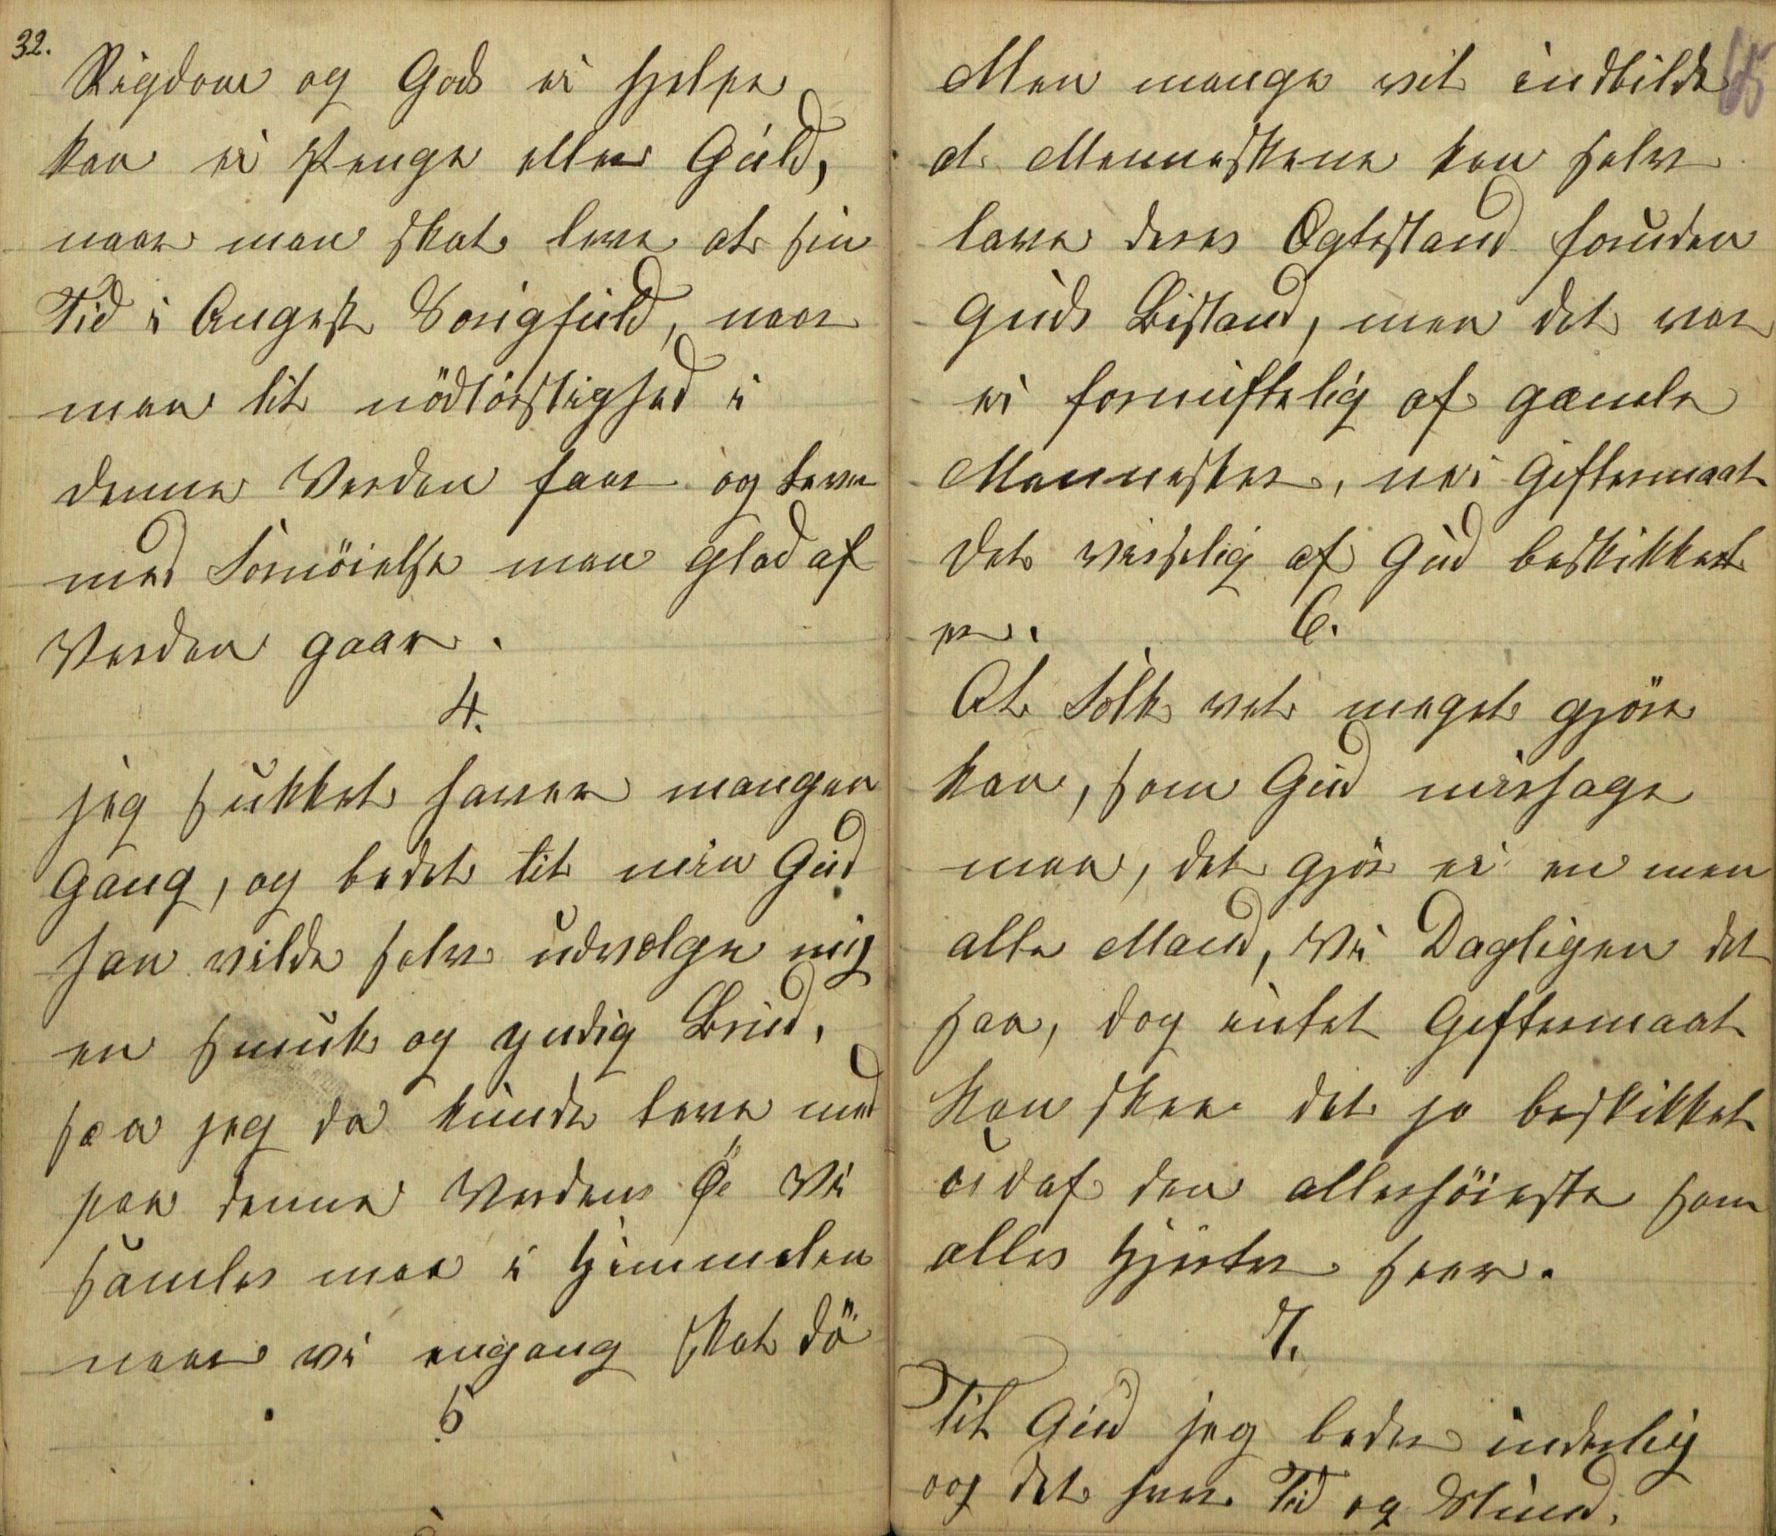 32.
Rigdom og Gods ei hjelpe
kan ei Penge eller Guld,
naar man skal leve al sin
Tid i Angest Sorigfuld, naar
man lit nödtörftighed i
denne Verden faar og leve
med Fornöielse man glad af
Verden gaar.
4.
jeg sukket haver mangen
Gang, og bedet til min Gud
han vilde selv udvælge mig
en smuk og yndig Brud.
som jeg da kunde leve med
paa denne Verdens Ö Vi
samles maa i Himmelen
naar vi engang skal dö
5
65
Men mange vil indbilde
at Menneskene kan selv
lave deres Ægtestand foruden
Guds Bistand, men det var
ei fornuftelig af gamle
Mennesker, nei Giftermaal
det visselig af Gud beskikket
er. 6.
At Folk vel meget gjöre
kan, som Gud mishage
maa, det gjör ei en men
alle Mand, Vi Dagligen det
saa, dog intet Giftermaal
kan skee det jo beskikket
er daf den allerhöieste som
alles Hjerter seer.
7.
Til Gud jeg beder inderlig
og det hver Tid og Stund.